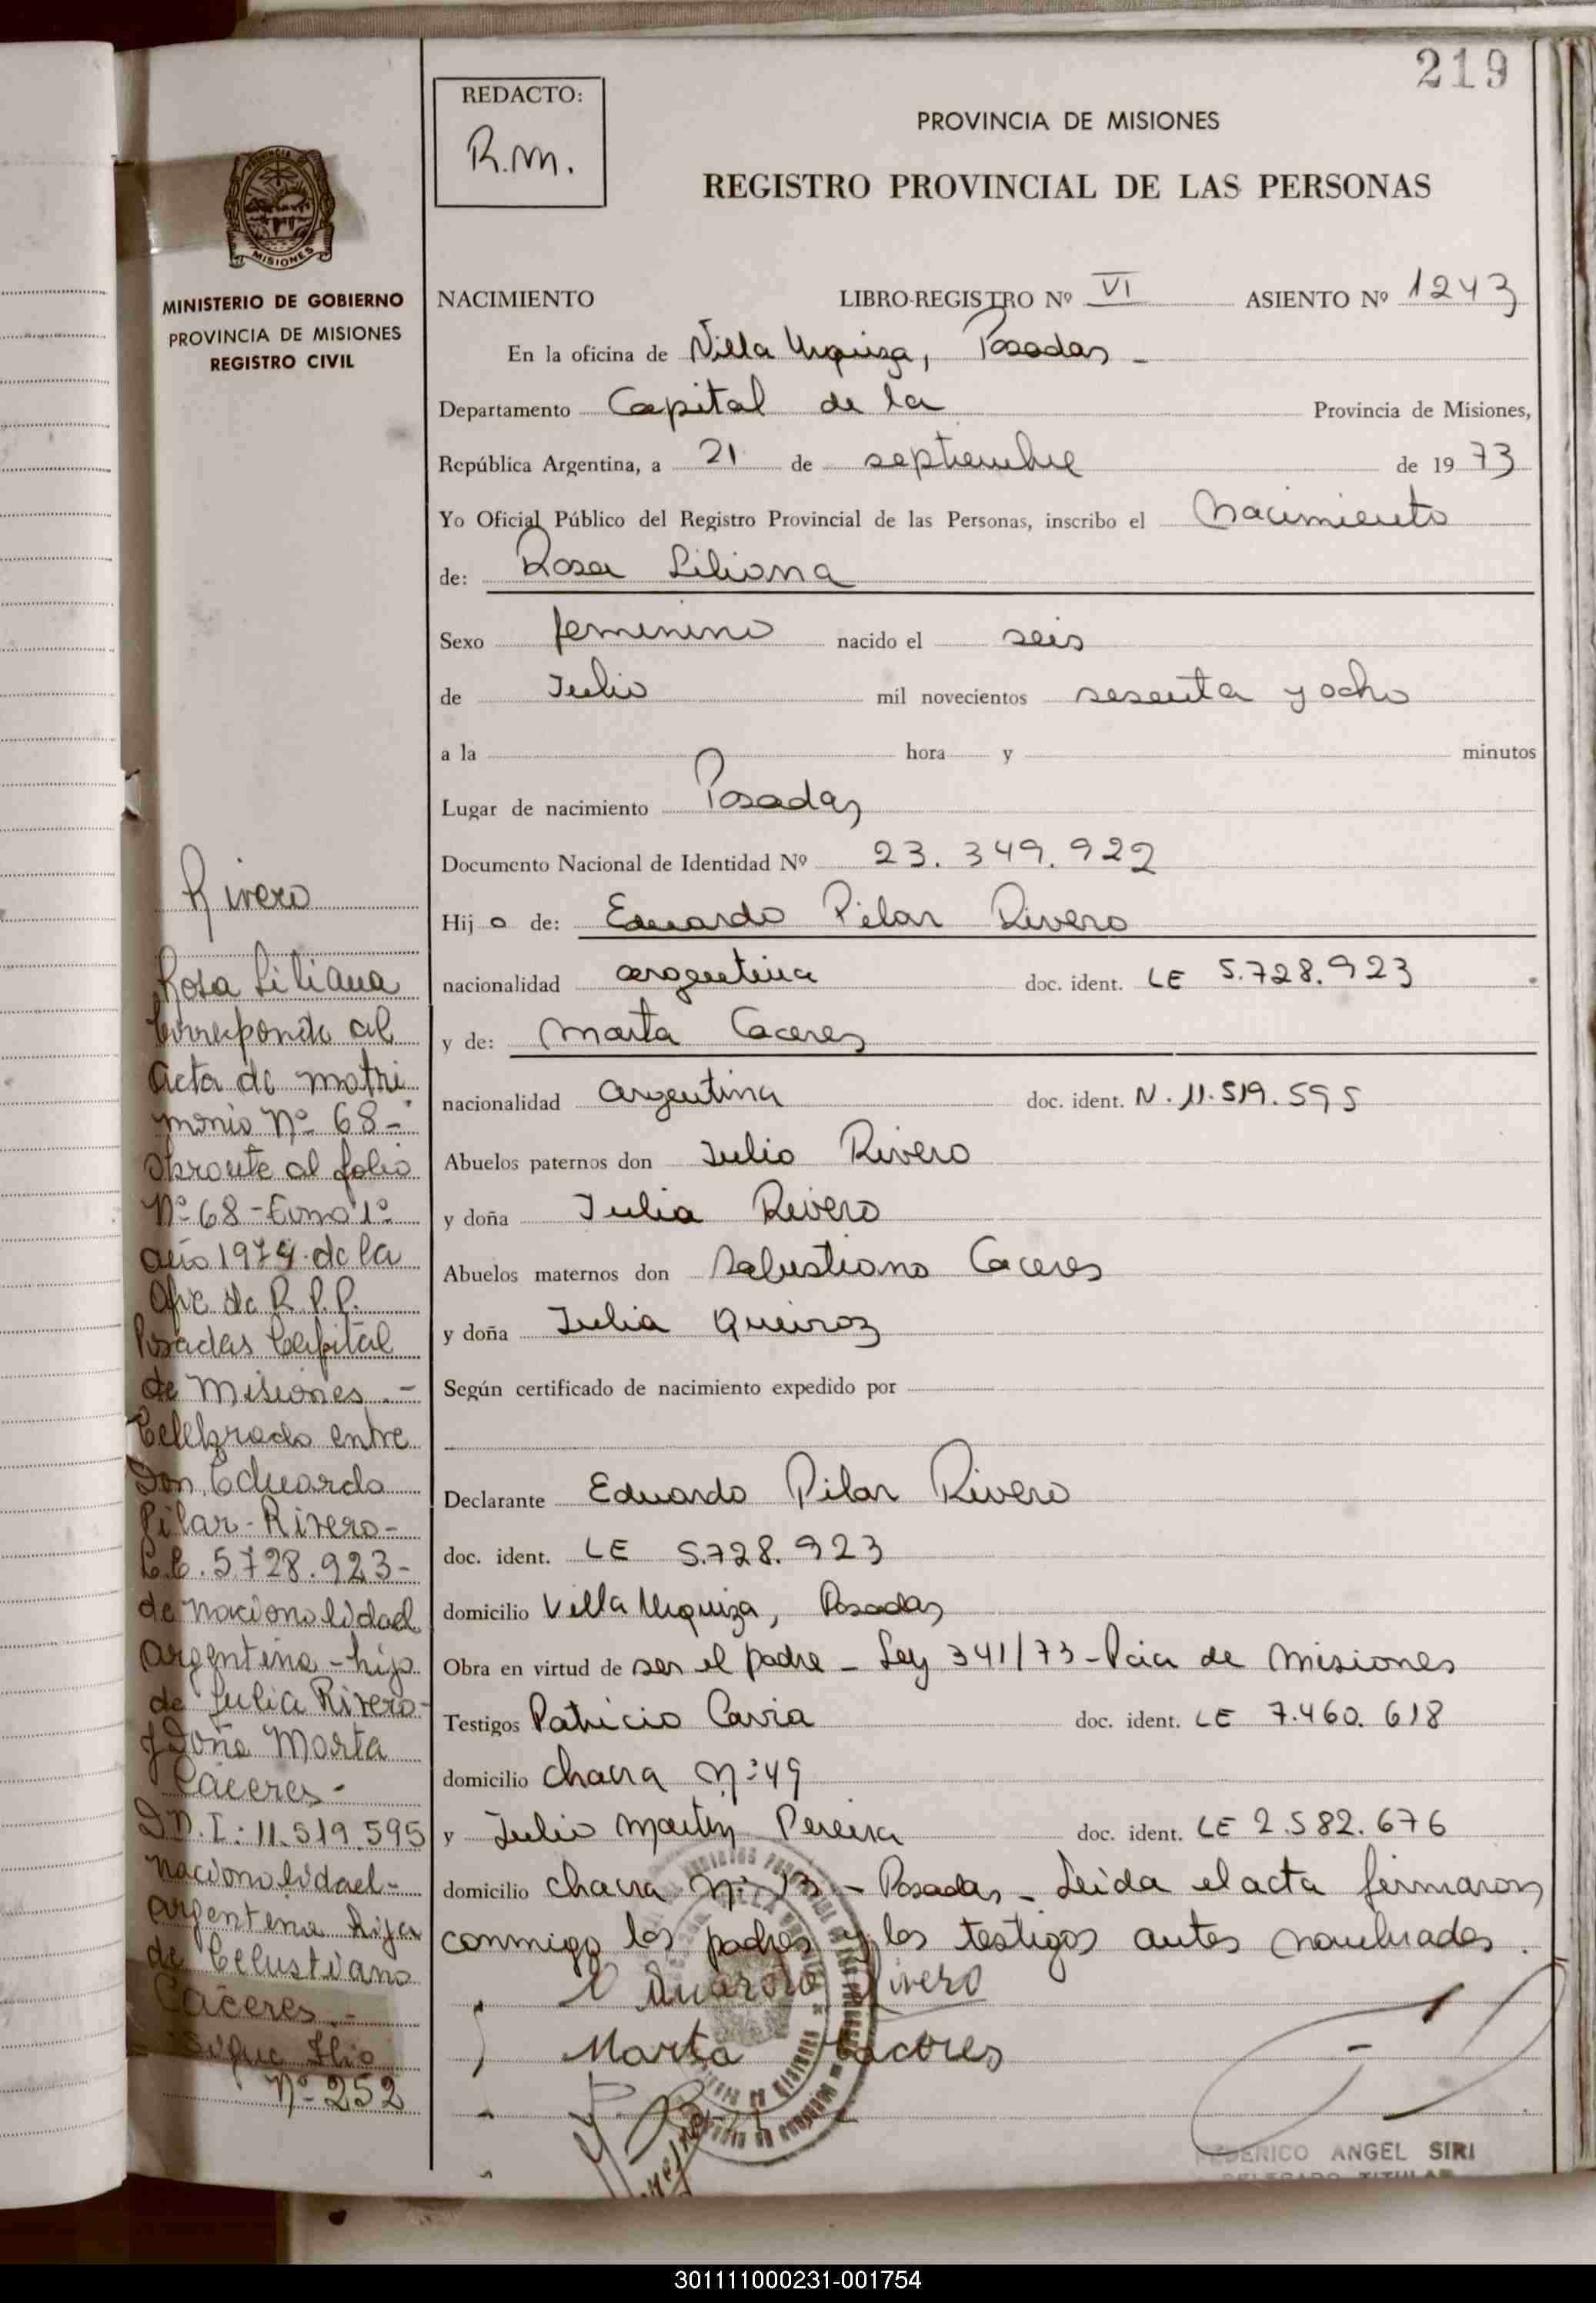 219
REDACTO:
R.M.
PROVINCIA DE MISIONES
REGISTRO PROVINCIAL DE LAS PERSONAS
MISIONES
MINISTERIO DE GOBIERNO
PROVINCIA DE MISIONES
REGISTRO CIVIL
NACIMIENTO LIBRO-REGISTRO Nº VI ASIENTO Nº 1243
En la oficina de Villa Urquiza, Posadas -
Departamento Capital de la Provincia de Misiones,
República Argentina, a 21 de septiembre de 1973
Yo Oficial Público del Registro Provincial de las Personas, inscribo el Nacimiento
de: Rosa Liliana
Sexo femenino nacido el seis
de Julio mil novecientos sesenta y ocho
a la hora y minutos
Lugar de nacimiento Posadas
Documento Nacional de Identidad Nº 23.349.922
Hij a de: Eduardo Pilar Rivero
nacionalidad argentina doc. ident. LE 5.728.923
y de: Marta Caceres
nacionalidad argentina doc. ident. N. 11.519.595
Abuelos paternos don Julio Rivero
y doña Julia Rivero
Abuelos maternos don Salustiano Caceres
y doña Julia Queiroz
Según certificado de nacimiento expedido por
Declarante Eduardo Pilar Rivero
doc. ident. LE 5.728.923
domicilio Villa Urquiza, Posadas
Obra en virtud de ser el padre - Ley 341/73 - Pcia de Misiones
Testigos Patricio Cavia doc. ident. LE 7.460.618
domicilio chacra Nº 49
y Julio Martin Pereira doc. ident. LE 2.582.676
domicilio chacra Nº 13 - Posadas - Leida el acta firmaron
conmigo los padres y los testigos antes nombrados.
Eduardo Rivero
Marta Caceres
FEDERICO ANGEL SIRI
DELEGADO TITULAR
Rivero
Rosa Liliana
Corresponde al
Acta de matri
monio Nº 68 -
obrante al folio
Nº 68 - Tomo 1º
año 1974 de la
Ofic de R.P.P.
Posadas Capital
de Misiones. -
Celebrado entre
Don Eduardo
Pilar - Rivero -
L.E. 5.728.923 -
de nacionalidad
argentina - hijo
de Julia Rivero -
y Doña Marta
Cáceres -
D.N.I: 11.519.595
nacionalidad -
argentina hija
de Celustiano
Cáceres. -
Sigue flio
Nº 252
301111000231-001754